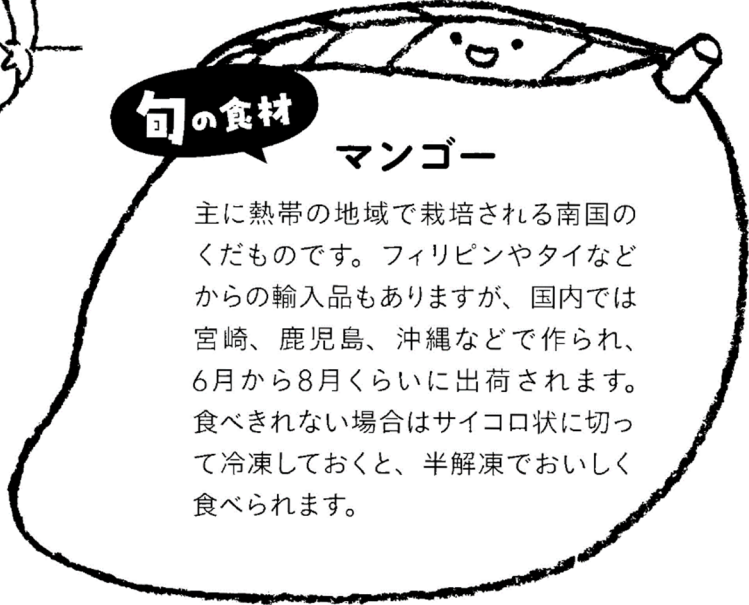 旬の食材
マンゴー
主に熱帯の地域で栽培される南国の
くだものです。フィリピンやタイなど
からの輸入品もありますが、国内では
宮崎、鹿児島、沖縄などで作られ、
6月から8月くらいに出荷されます。
食べきれない場合はサイコロ状に切っ
て冷凍しておくと、半解凍でおいしく
食べられます。